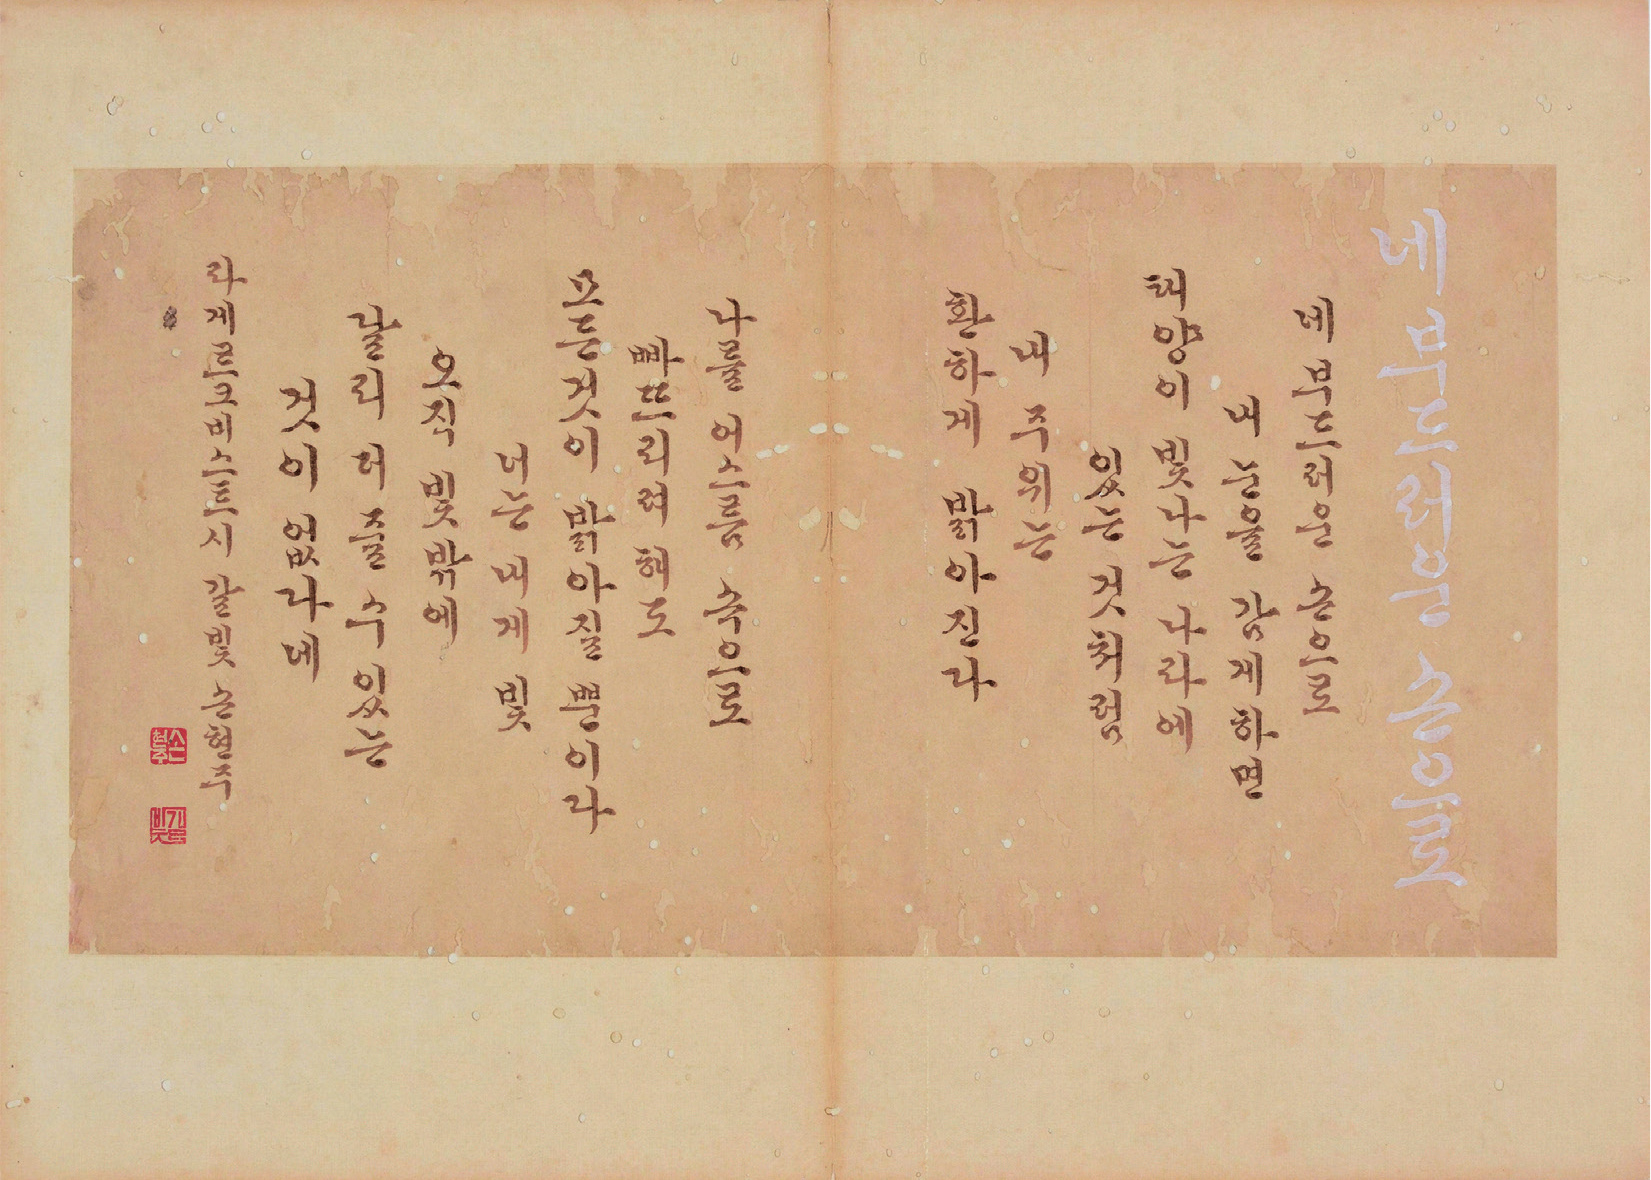 네 부드러운 손으로
네 부드러운 손으로
내 눈을 감게하면
태양이 빛나는 나라에
있는 것처럼
내 주위는
환하게 밝아진다
나를 어스름 속으로
빠뜨리려 해도
모든것이 밝아질 뿐이라
너는 내게 빛
오직 빛밖에
달리 더 줄 수 있는
것이 없다네
라게르크비스트시 갈빛 손현주
손현주